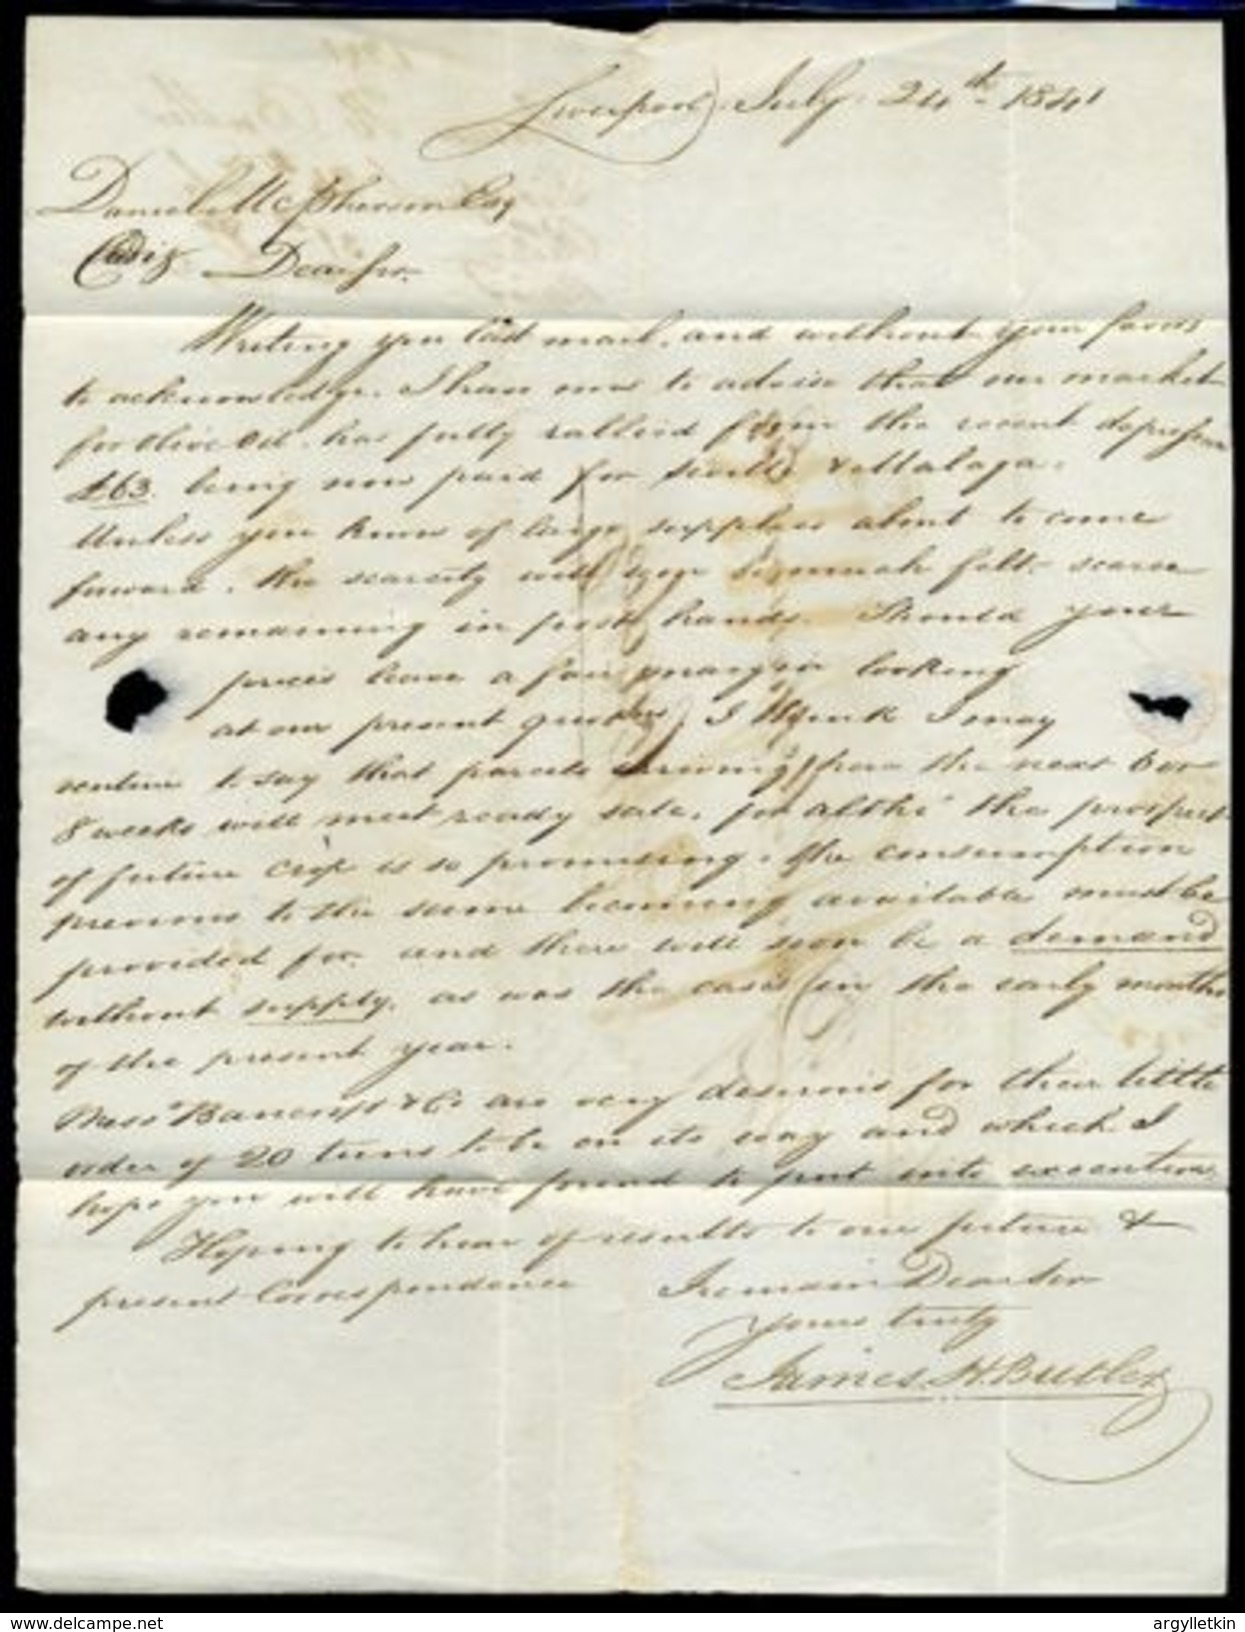 Liverpool July 24th 1841
Daniel McPherson Esq
Cadiz Dear Sir.
Writing you last mail, and without your favors
to acknowledge. I have now to advise that our market
for Olive Oil has fully rallied from the recent depression
£63. being now paid for Seville & Malaga.
Unless you know of large supplies about to come
forward, the scarcity will be much felt. scarce
any remaining in first hands. Should your
prices leave a fair margin looking
at our present quotations, I think I may
venture to say that parcels arriving here the next 6 or
8 weeks will meet ready sale, for altho' the prospect
of future crop is so promising, the consumption
previous to the same becoming available must be
provided for. and there will soon be a demand
without supply. as was the case in the early months
of the present year.
Messrs Bancroft & Co are very desirous for their little
order of 20 tuns to be on its way and which I
hope you will have found to put into execution.
Hoping to hear of results to our future &
present Correspondence I remain Dear Sir
Yours truly
James H. Butler
www.delcampe.net
argylletkin